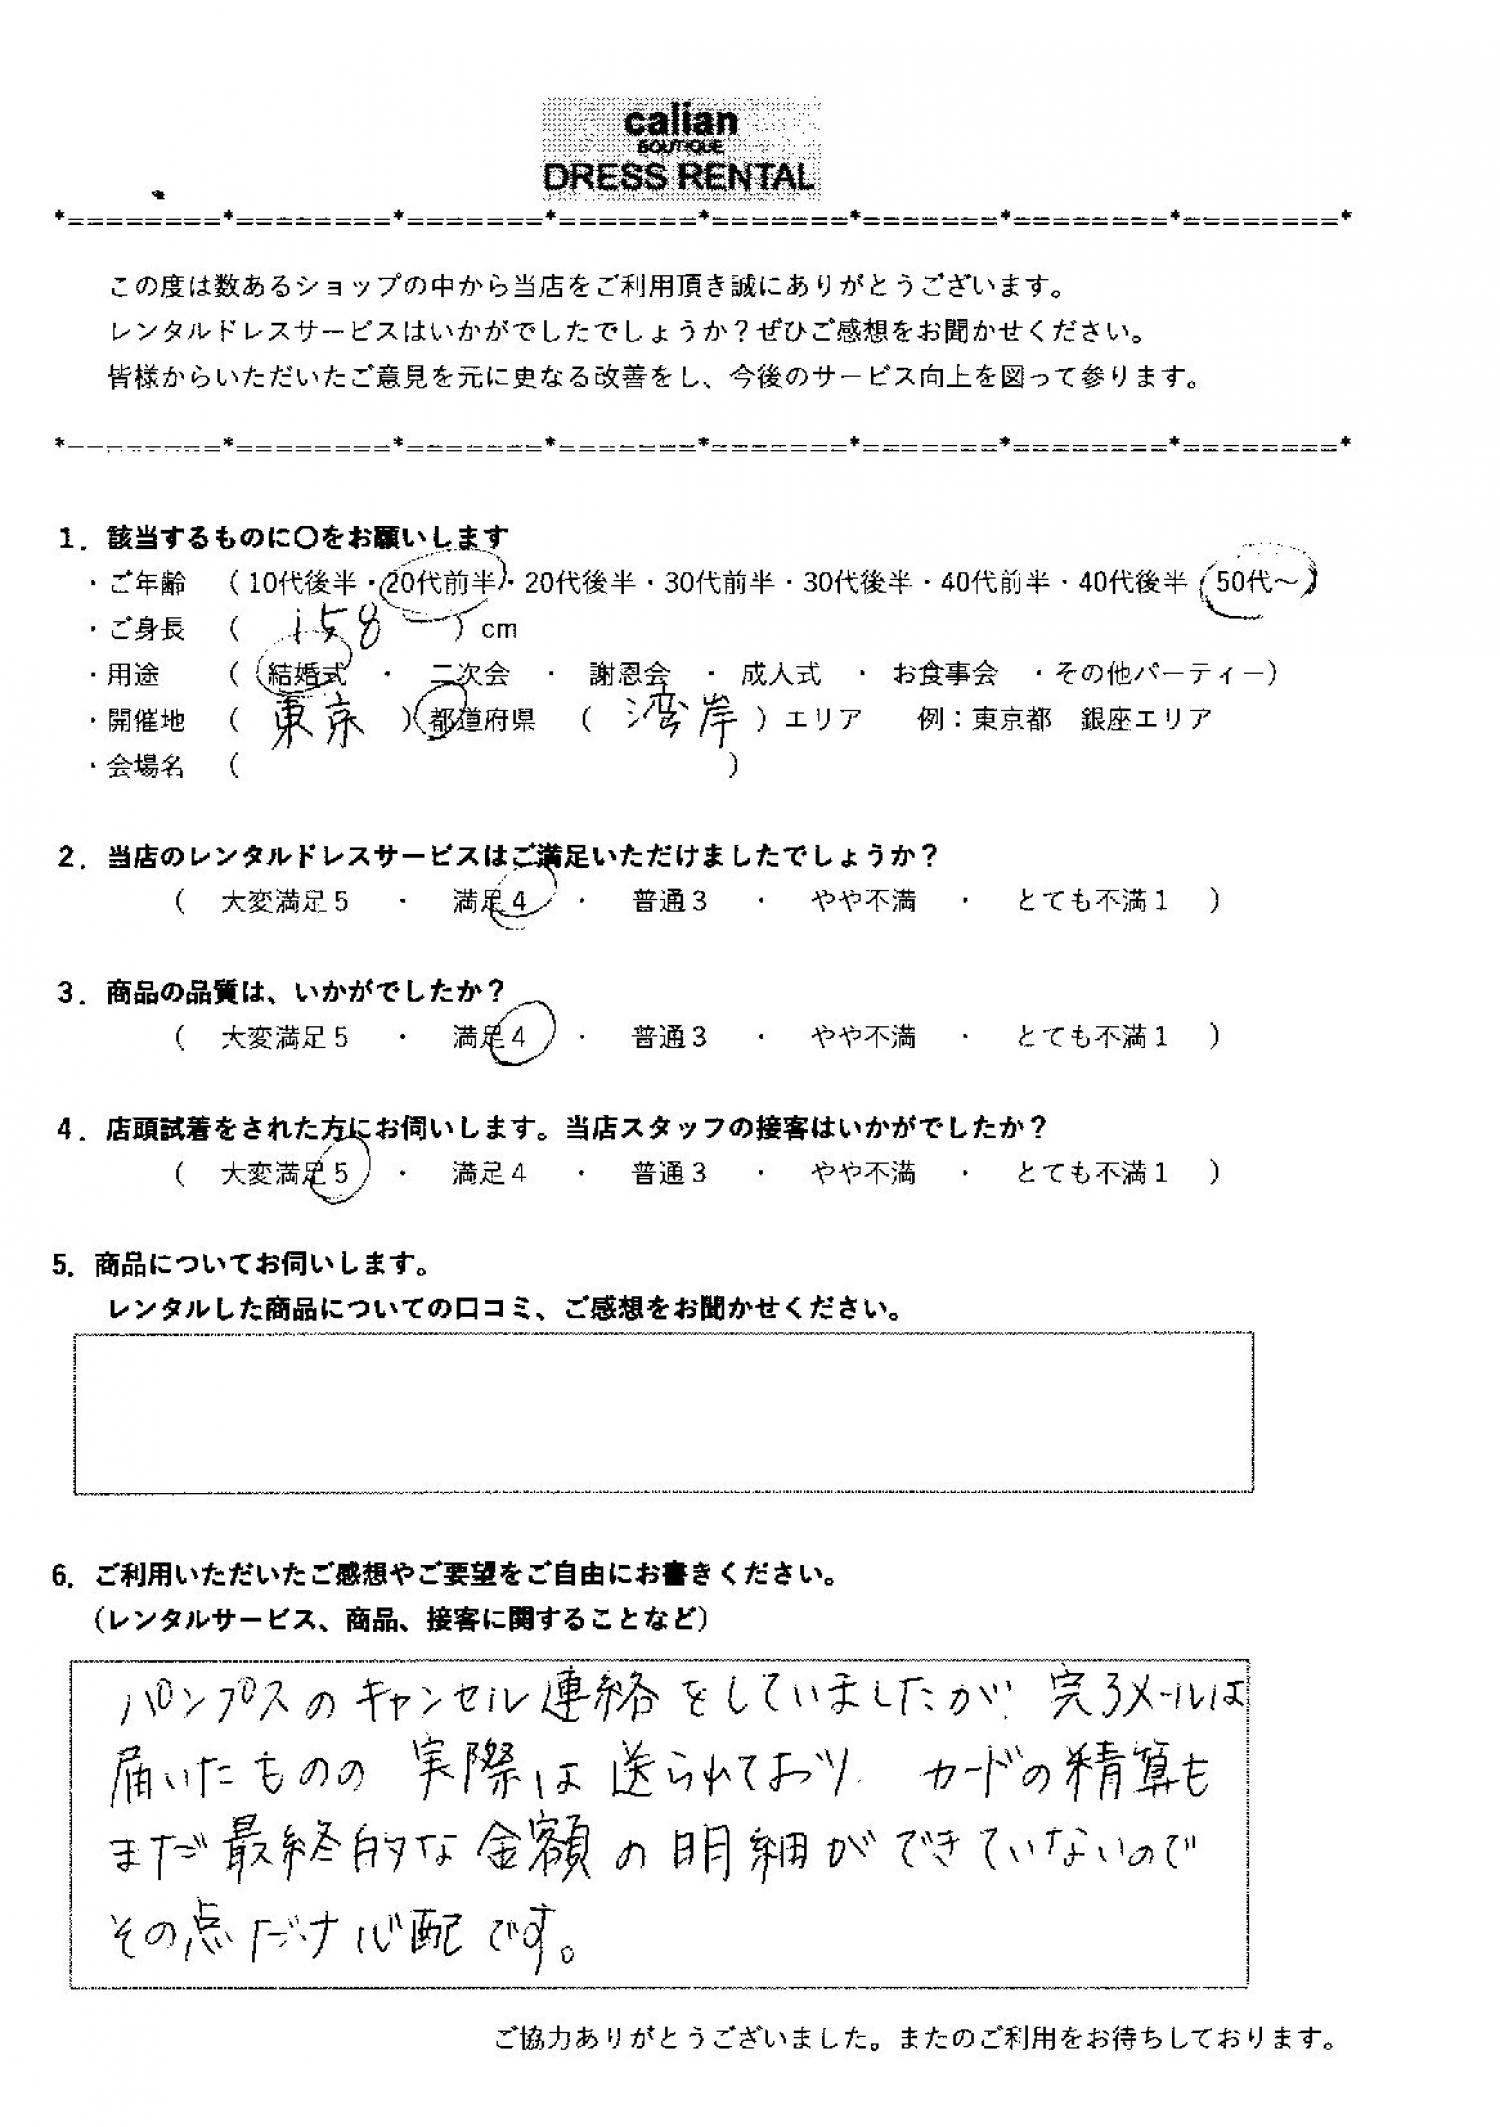 calian
BOUTIQUE
DRESS RENTAL
*========*========*=======*=======*=======*=======*========*========*
この度は数あるショップの中から当店をご利用頂き誠にありがとうございます。
レンタルドレスサービスはいかがでしたでしょうか？ぜひご感想をお聞かせください。
皆様からいただいたご意見を元に更なる改善をし、今後のサービス向上を図って参ります。
*========*========*=======*=======*=======*=======*========*========*
1．該当するものに〇をお願いします
・ご年齢　（10代後半・20代前半・20代後半・30代前半・30代後半・40代前半・40代後半・50代～）
・ご身長　（　158　）cm
・用途　（　結婚式　・　二次会　・　謝恩会　・　成人式　・　お食事会　・その他パーティー）
・開催地　（　東京　）都道府県　（　湾岸　）エリア　例：東京都　銀座エリア
・会場名　（　　　）
2．当店のレンタルドレスサービスはご満足いただけましたでしょうか？
（　大変満足5　・　満足4　・　普通3　・　やや不満　・　とても不満1　）
3．商品の品質は、いかがでしたか？
（　大変満足5　・　満足4　・　普通3　・　やや不満　・　とても不満1　）
4．店頭試着をされた方にお伺いします。当店スタッフの接客はいかがでしたか？
（　大変満足5　・　満足4　・　普通3　・　やや不満　・　とても不満1　）
5．商品についてお伺いします。
レンタルした商品についての口コミ、ご感想をお聞かせください。
6．ご利用いただいたご感想やご要望をご自由にお書きください。
（レンタルサービス、商品、接客に関することなど）
パンプスのキャンセル連絡をしていましたが、完了メールは
届いたものの 実際は送られており、カードの精算も
まだ最終的な金額の明細ができていないので
その点だけ心配です。
ご協力ありがとうございました。またのご利用をお待ちしております。